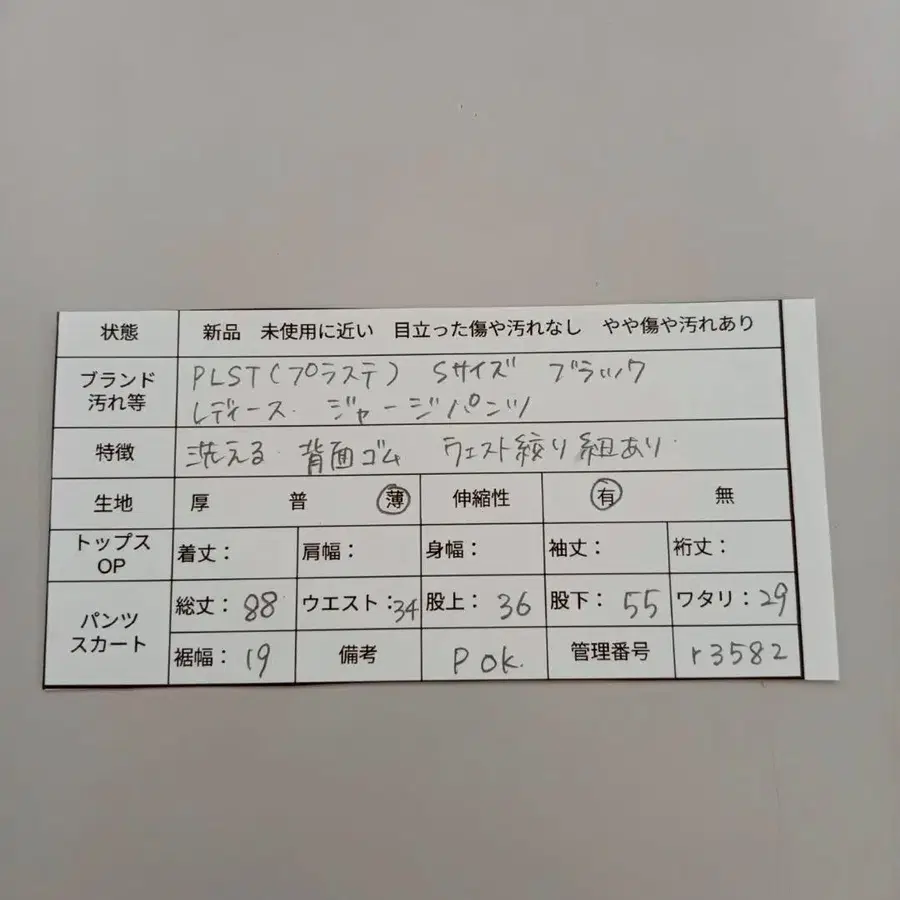 状態 新品 未使用に近い 目立った傷や汚れなし やや傷や汚れあり
ブランド 汚れ等 PLST(プラステ) Sサイズ ブラック
レディース. ジャージパンツ
特徴 洗える 背面ゴム ウエスト絞り紐あり
生地 厚 普 薄 伸縮性 有 無
トップス OP 着丈: 肩幅: 身幅: 袖丈: 裄丈:
パンツ スカート 総丈: 88 ウエスト: 34 股上: 36 股下: 55 ワタリ: 29
裾幅: 19 備考 P ok. 管理番号 r3582